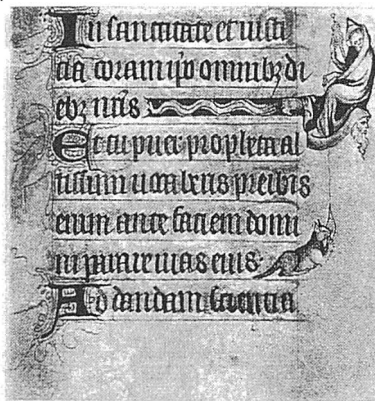 In sanctitate et iusti
cia coram ipo omnibz di
ebz nris
Et tu puer propheta al
tissimi uocaberis preibis
enim ante faciem domi
ni parare uias eius
Ad dandam sciencia